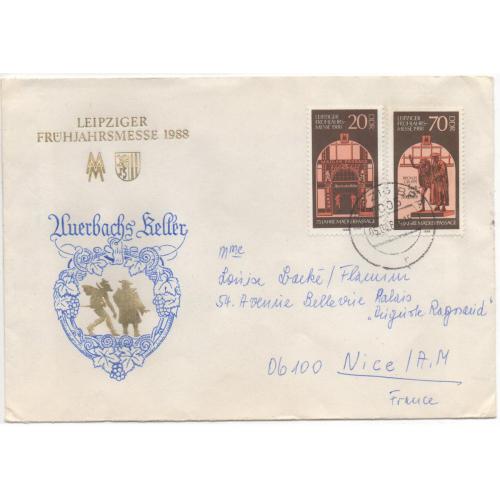 LEIPZIGER
FRÜHJAHRSMESSE 1988
MM
Auerbachs Keller
20
DDR
LEIPZIGER
FRÜHJAHRS-
MESSE 1988
75 JAHRE MÄDLERPASSAGE
70
DDR
LEIPZIGER
FRÜHJAHRS-
MESSE 1988
75 JAHRE MÄDLERPASSAGE
Mme
Louise Backé / Flamium
54. Avenue Bellevue Palais
„Auguste Raynaud"
06100 Nice / A.M
France